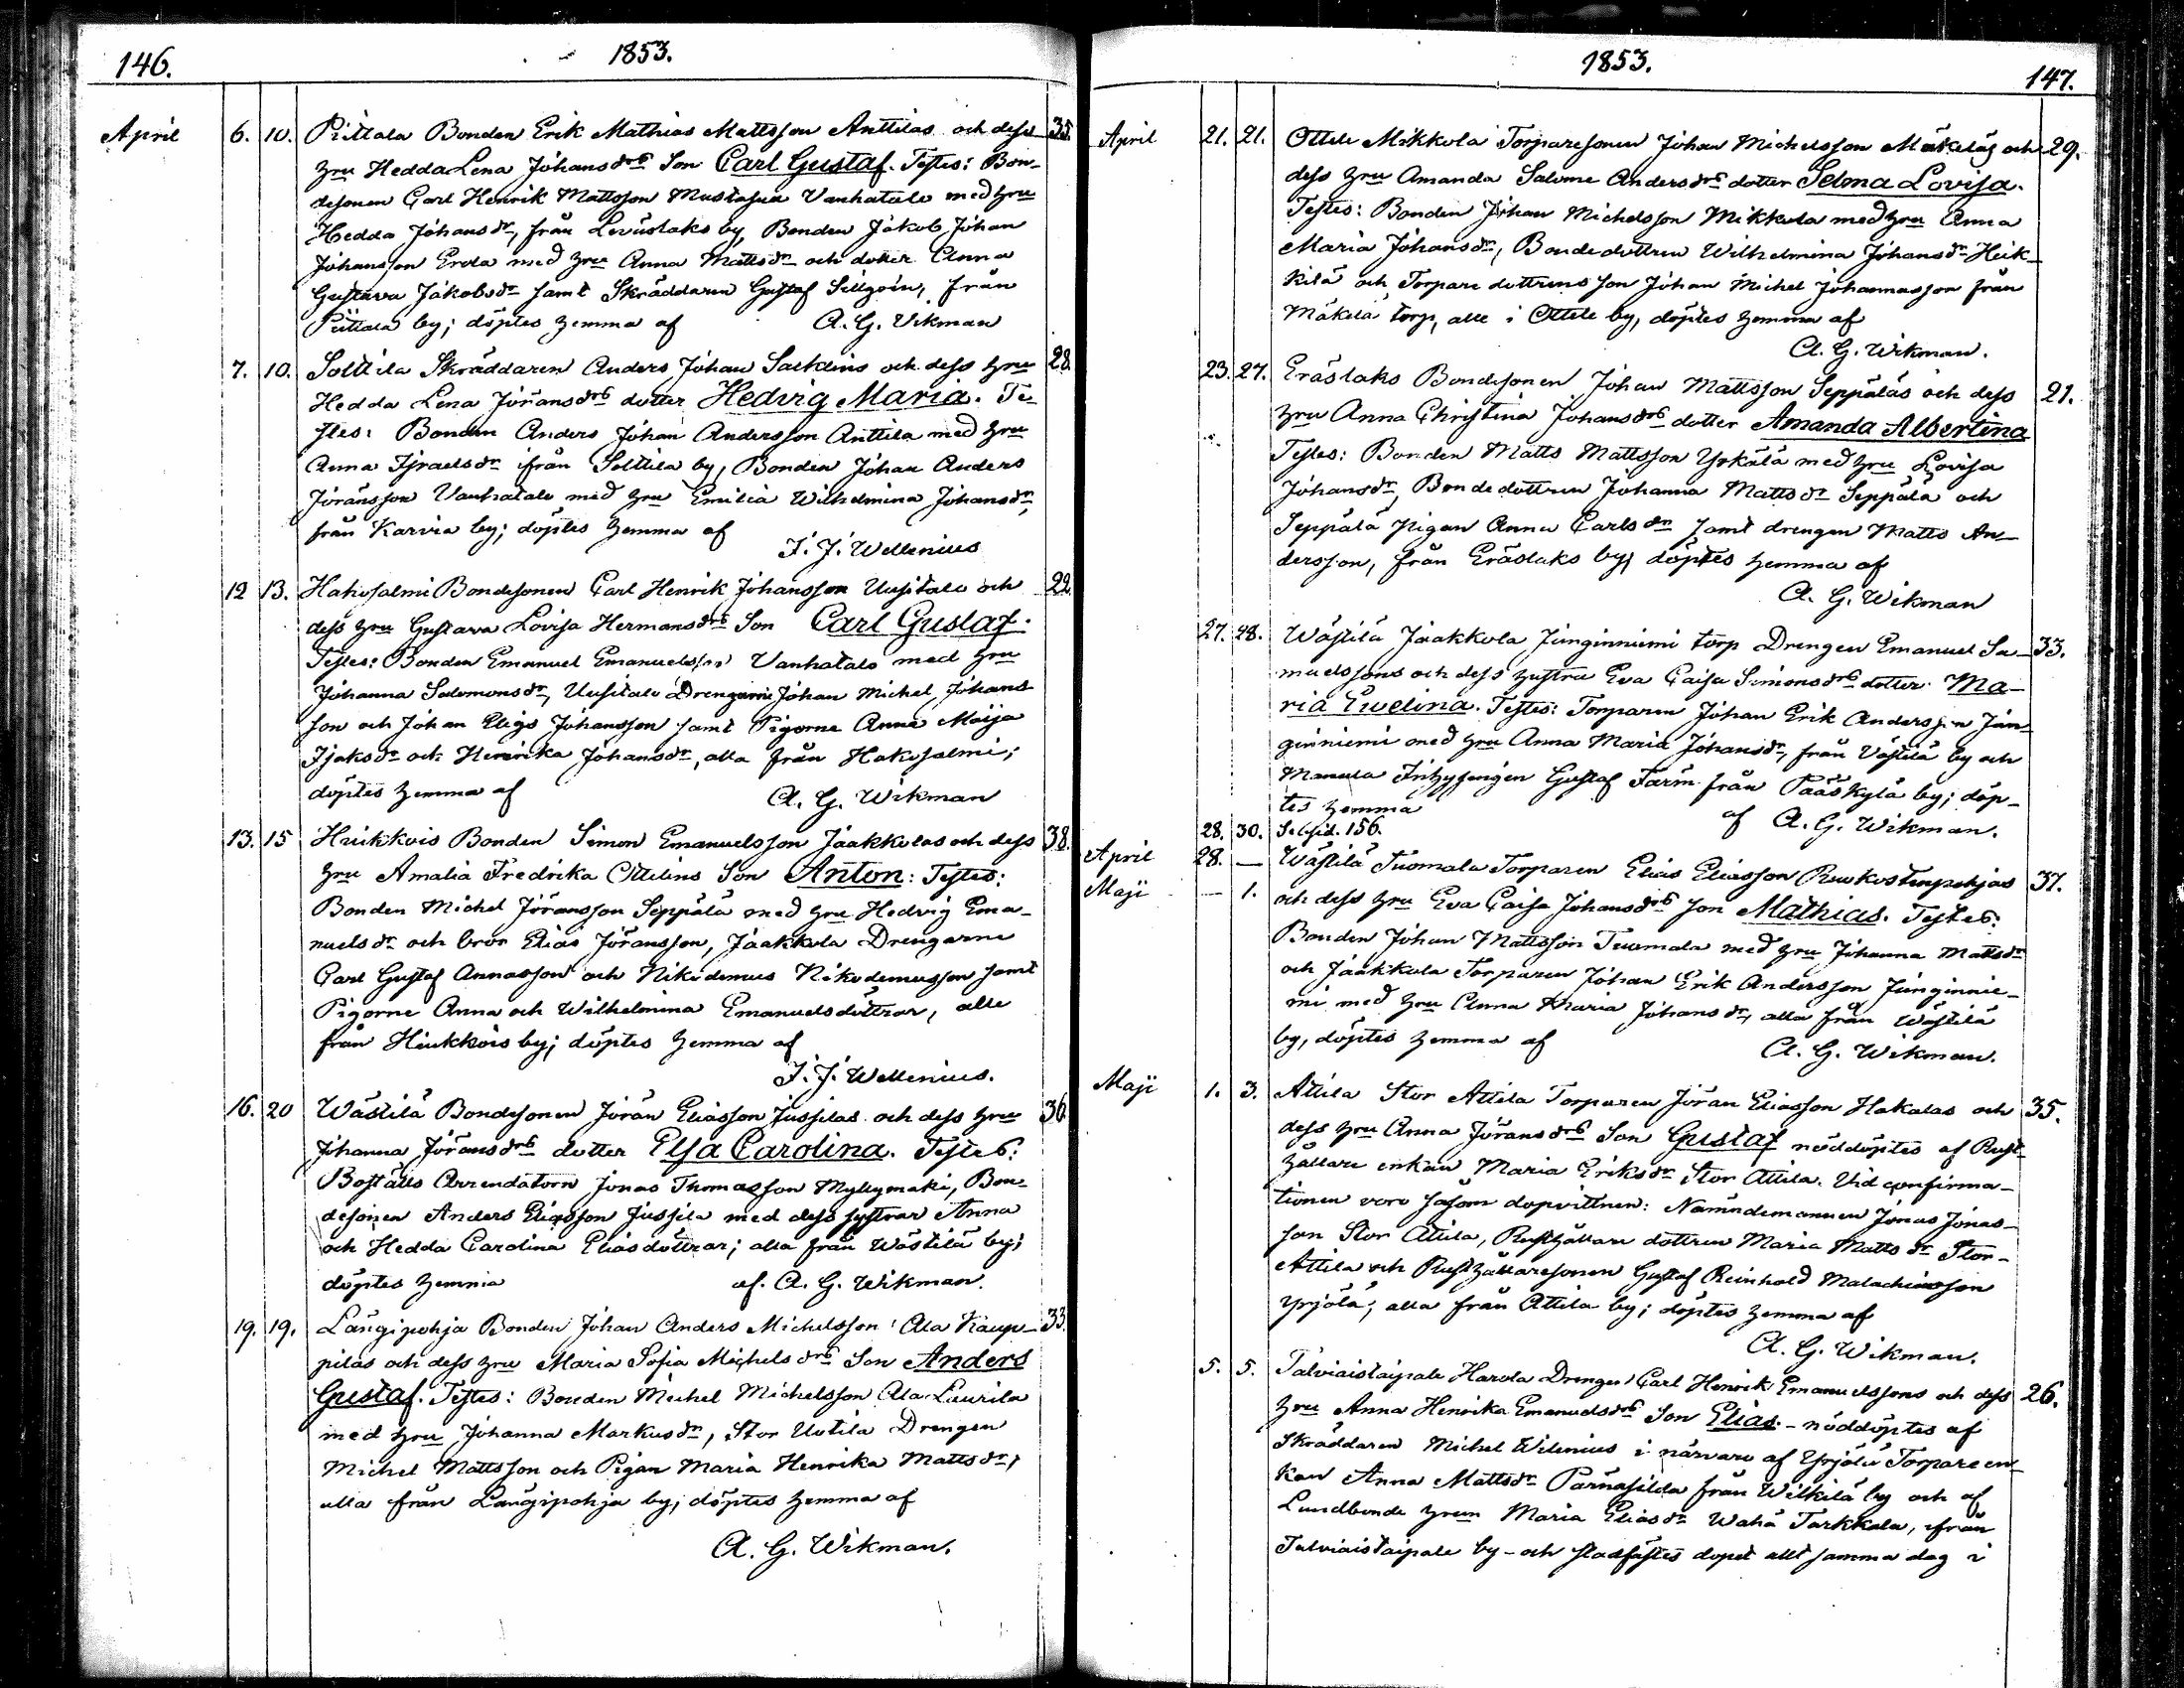 146.
1853.
April 6. 10. Pittala Bonden Erik Mathias Mattsson Anttilas och dess 35.
hru Hedda Lena Johansdrs Son Carl Gustaf. Testes: Bon-
desonen Carl Henrik Mattsson Vanhatalo med hru
Hedda Johansdr, från by, Bonden Jakob Johan
Johansson Erola med hru Anna Mattsdr och dotter Anna
Gustava Jakobsdr samt Skräddaren Gustaf från
Pittala by; döptes hemma af A. G. Wikman
7. 10. Solttila Skräddaren Anders Johan och dess hru 28.
Hedda Lena Jöransdrs dotter Hedvig Maria. Te-
stes: Bonden Anders Johan Andersson Anttila med hru
Anna Israelsdr ifrån Solttila by, Bonden Johan Anders
Jöransson Vanhatalo med hru Emilia Wilhelmina Johansdr,
från Karvia by; döptes hemma af
J. J. Wellenius
12 13. Hakosalmi Bondesonen Carl Henrik Johansson Uusitalo och 22.
dess hru Gustava Lovisa Hermansdrs Son Carl Gustaf.
Testes: Bonden Emanuel Emanuelsson Vanhatalo med hru
Johanna Salomonsdr, Uusitalo Drengarne Johan Michel Johans-
son och Johan Johansson samt Pigorne Anna Maija
Isaksdr och Henrika Johansdr, alla från Hakosalmi;
döptes hemma af A. G. Wikman
13. 15 Hiukkois Bonden Simon Emanuelsson Jaakkolas och dess 38.
hru Amalia Fredrika Ottelins Son Anton: Testes:
Bonden Michel Jöransson Seppälä med hru Hedvig Ema-
nuelsdr och bror Elias Jöransson, Jaakkola Drengarne
Carl Gustaf Annasson och Nikodemus Nikodemusson samt
Pigorne Anna och Wilhelmina Emanuelsdöttrar, alle
från Hiukkois by; döptes hemma af
J. J. Wellenius.
16. 20 Wästilä Bondesonen Jöran Eliasson Jussilas och dess hru 36.
Johanna Jöransdrs dotter Elsa Carolina. Testes:
Boställs Arrendatorn Jonas Thomasson Myllymäki, Bon-
desonen Anders Eliasson Jussila med dess systrar Anna
och Hedda Carolina Eliasdöttrar; alla från Wästilä by;
döptes hemma af. A. G. Wikman.
19. 19. Längipohja Bonden Johan Anders Michelsson Ala Kaup- 33.
pilas och dess hru Maria Sofia Michelsdrs Son Anders
Gustaf. Testes: Bonden Michel Michelsson Ala Laurila
med hru Johanna Markusdr, Stor Uotila Drengen
Michel Mattsson och Pigan Maria Henrika Mattsdr,
alla från Längipohja by; döptes hemma af
A. G. Wikman.
1853.
147.
April 21. 21. Ottele Mikkola Torparesonen Johan Michelsson Mäkeläs och 29.
dess hru Amanda Salome Andersdrs dotter Selma Lovisa.
Testes: Bonden Johan Michelsson Mikkola med hru Anna
Maria Johansdr, Bondedottren Wilhelmina Johansdr Heik-
kilä och Torpare dottrens son Johan Michel Johannasson från
Mäkelä torp, alle i Ottele by, döptes hemma af
A. G. Wikman.
23. 27. Eräslaks Bondesonen Johan Mattsson Seppäläs och dess 21.
hru Anna Christina Johansdrs dotter Amanda Albertina
Testes: Bonden Matts Mattsson med hru Lovisa
Johansdr, Bondedottren Johanna Mattsdr Seppälä och
Seppälä Pigan Anna Carlsdr samt drengen Matts An-
dersson, från Eräslaks by; döptes hemma af
A. G. Wikman
27. 28. Wästilä Jaakkola Junginniemi torp Drengen Emanuel Sa- 33.
muelssons och dess hustru Eva Caisa Simonsdrs dotter Ma-
ria Ewelina. Testes: Torparen Johan Erik Andersson Jun-
ginniemi med hru Anna Maria Johansdr, från Västilä by och
Mannila Inhysingen Gustaf Farm från Pääskylä by; döp-
tes hemma af A. G. Wikman.
28. 30. Se sid. 156.
April 28. — Wästilä Tuomala Torparen Elias Eliasson 37.
Maji — 1. och dess hru Eva Caisa Johansdrs son Mathias. Testes:
Bonden Johan Mattsson Tuomala med hru Johanna Mattsdr
och Jaakkola Torparen Johan Erik Andersson Junginnie-
mi med hru Anna Maria Johansdr, alla från Wästilä
by, döptes hemma af A. G. Wikman.
Maji 1. 3. Attila Stor Attila Torparen Jöran Eliasson Hakalas och 35.
dess hru Anna Jöransdrs Son Gustaf nöddöptes af Rust-
hållare enkan Maria Eriksdr Stor Attila. Vid confirma-
tionen voro såsom dopvittnen: Nämndemannen Jonas Jonas-
son Stor Attila, Rusthållare dottren Maria Mattsdr Stor-
Attila och Rusthållaresonen Gustaf Reinhold Malachiasson
Yrjölä; alla från Attila by; döptes hemma af
A. G. Wikman.
5. 5. Talviaistaipale Harola Drengen Carl Henrik Emanuelssons och dess 26.
hru Anna Henrika Emanuelsdrs Son Elias. - nöddöptes af
Skräddaren Michel Wilenius i närvaro af Yrjölä Torpare en-
kan Anna Mattsdr Pärnäsilda från Wilkilä by och af
Landbonde hrun Maria Eliasdr Wähä Tarkkala, från
Talviaistaipale by - och stadfästes dopet allt samma dag i